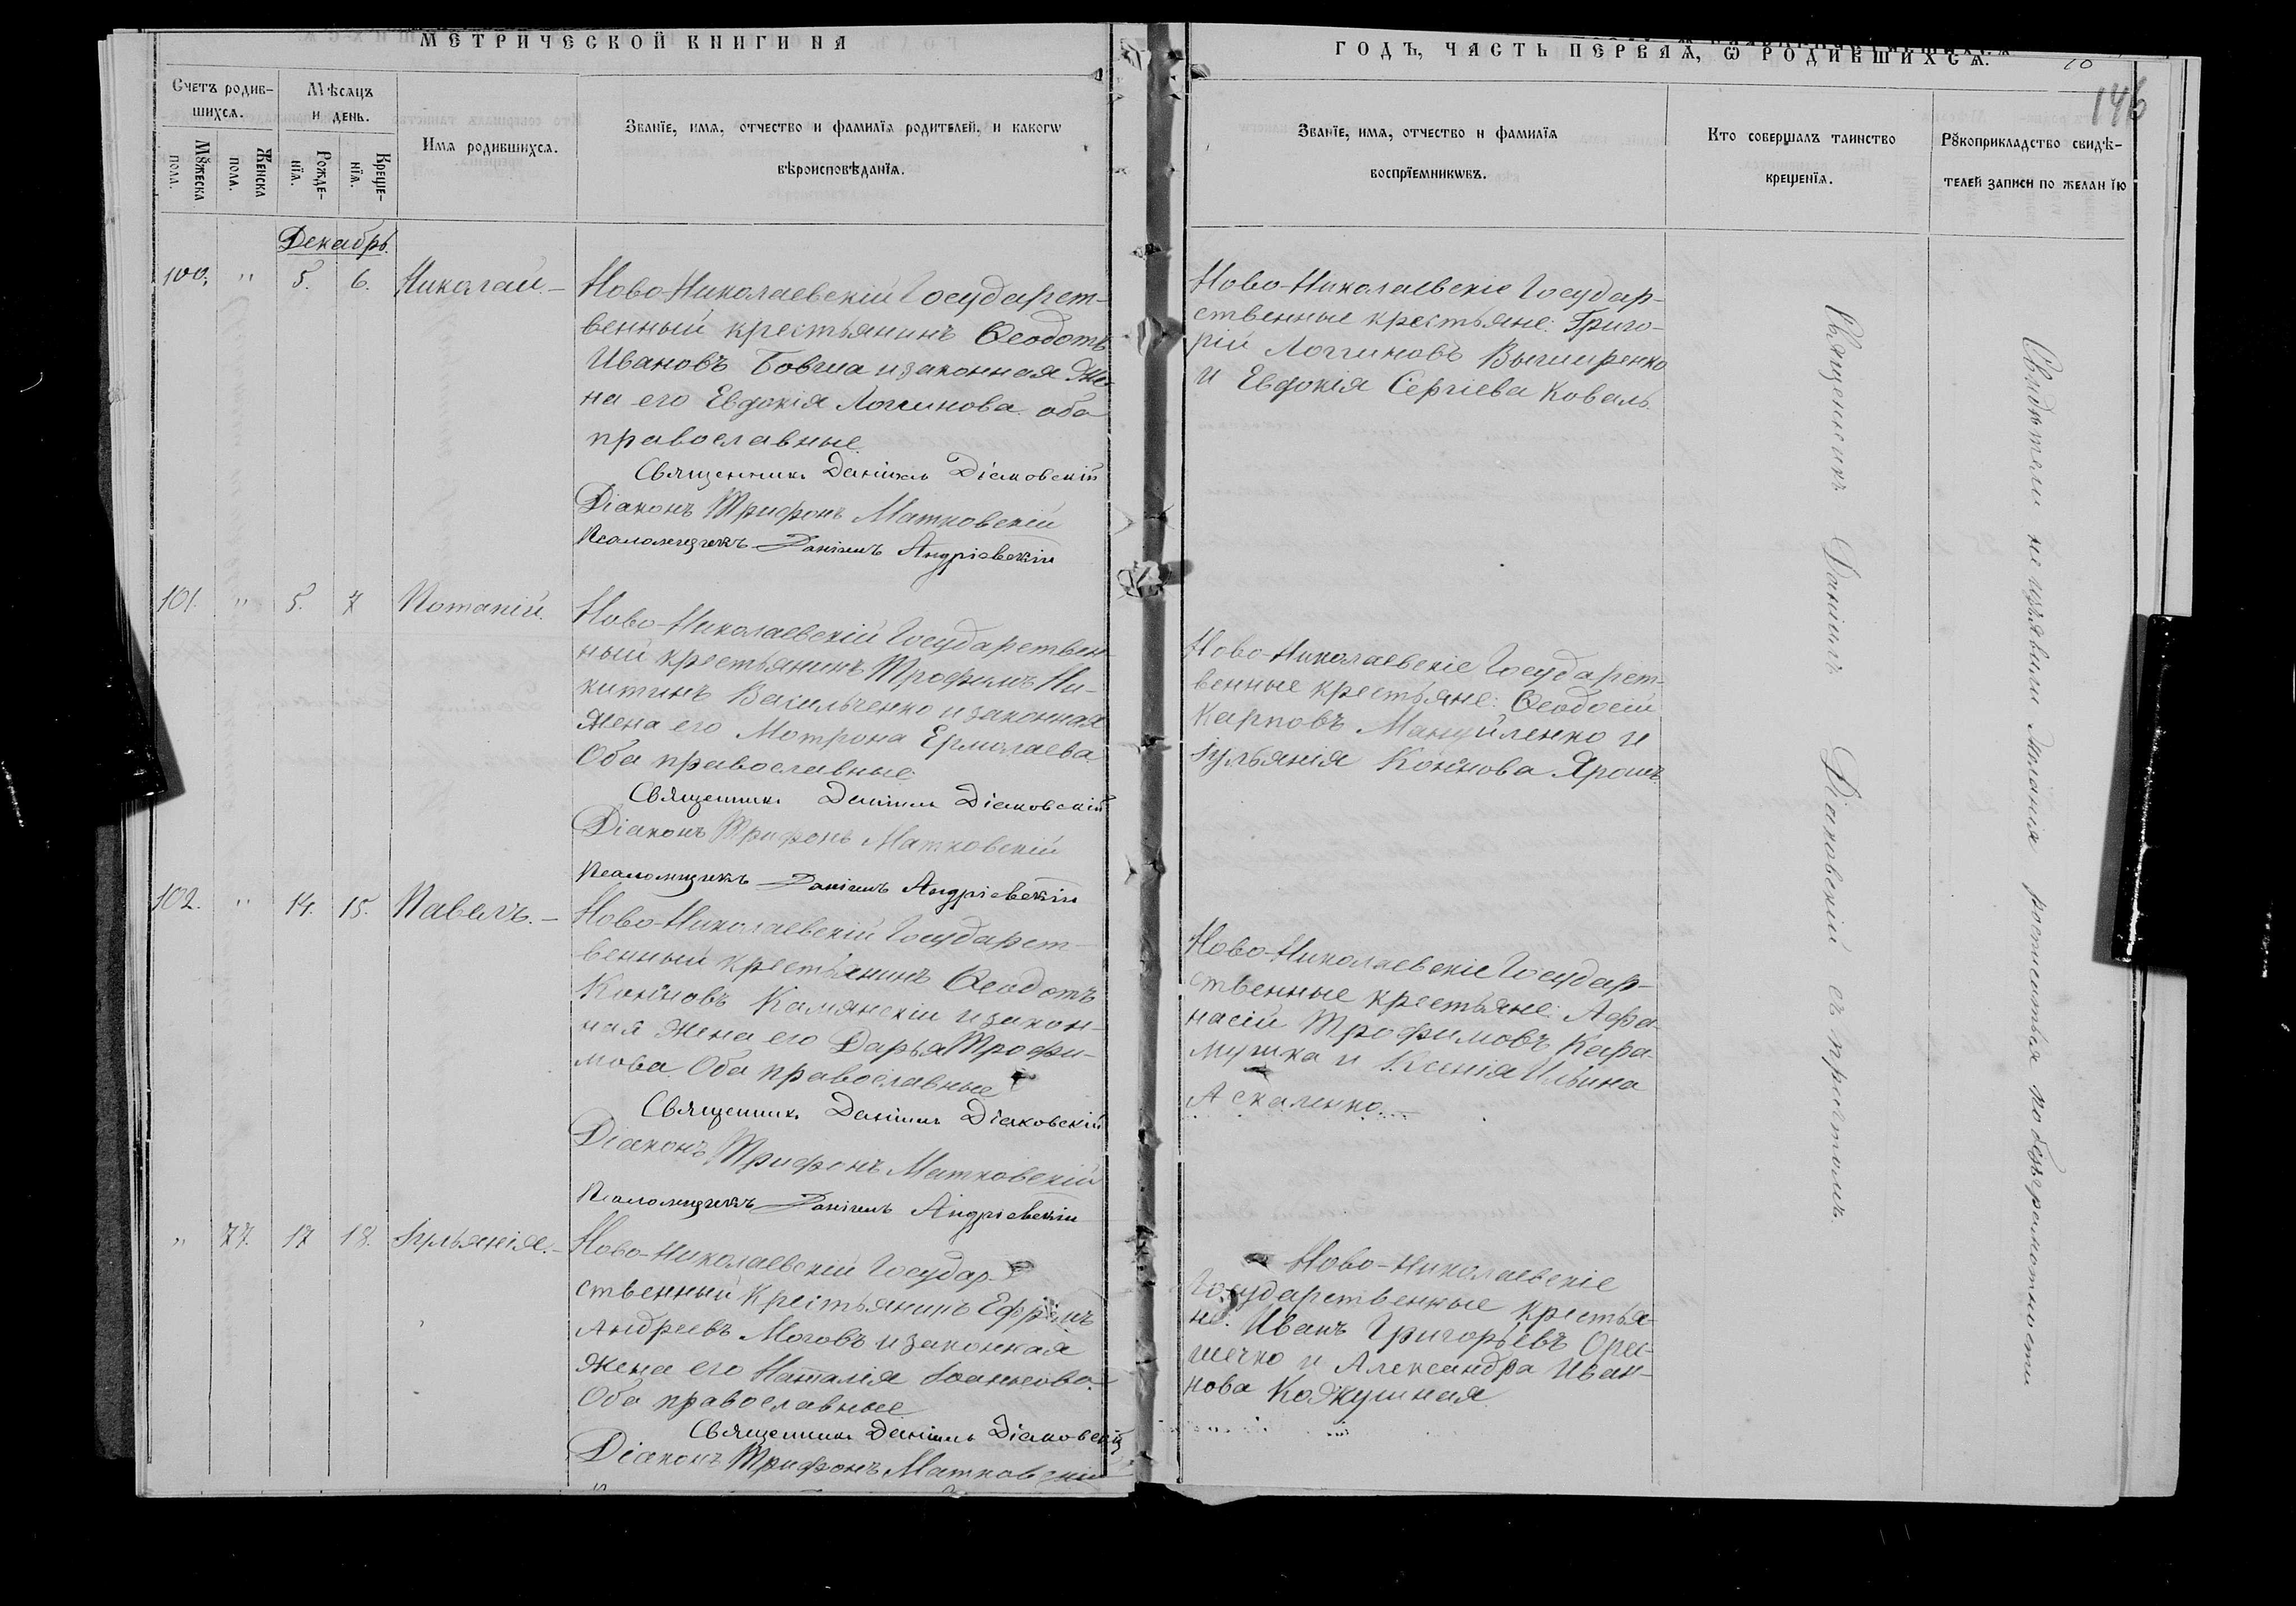 МЕТРИЧЕСКОЙ КНИГИ НА
ГОДЪ, ЧАСТЬ ПЕРВАѦ, Ѡ РОДИВШИХСѦ.
10
146
Счетъ родив-
шихсѧ.
Мꙋжеска
пола.
Женска
пола.
Мѣсѧцъ
и день.
Рожде-
нїѧ.
Креще-
нїѧ.
Имѧ родившихсѧ.
Званїе, имѧ, отчество и фамилїѧ родителей, и какогѡ
вѣроисповѣданїѧ.
Званїе, имѧ, отчество и фамилїѧ
воспрїемникѡвъ.
Кто совершалъ таинство
крещенїѧ.
Рꙋкоприкладство свидѣ-
телей записи по желанїю
Декабрь.
100. " 5. 6. Николай.-
Ново-Николаевскій Государст-
венный крестьянинъ Ѳеодотъ
Ивановъ Бовша и законная Же-
на его Евдокія Логинова оба
православные.
Священникъ Даніилъ Діаковскій
Діаконъ Трифонъ Матковскій
Псаломщикъ Даніилъ Андріевскій
Ново-Николаевскіе Государ-
ственные крестьяне: Григо-
рій Логиновъ
и Евдокія Сергіева Коваль.
101. " 5. 7 Потапій.
Ново-Николаевскій Государствен
ный крестьянинъ Трофимъ Ни-
китинъ Васильченко и законная
Жена его Мотрона Ермолаева
Оба православные.
Священникъ Даніилъ Діаковскій
Діаконъ Трифонъ Матковскій
Псаломщикъ Даніилъ Андріевскій
Ново-Николаевскіе Государст-
венные крестьяне: Ѳеодосій
Карповъ Мануйленко и
Іульянія Кононова Ярошъ.
102. " 14. 15. Павелъ.-
Ново-Николаевскій Государст-
венный крестьянинъ Ѳеодотъ
Кононовъ Камянскій и закон-
ная Жена его Дарья Трофи-
мова Оба православные
Священникъ Даніилъ Діаковскій
Діаконъ Трифонъ Матковскій
Псаломщикъ Даніилъ Андріевскій
Ново-Николаевскіе Государ-
ственные крестьяне: Афа-
насій Трофимовъ Кара-
мушка и Ксенія Ильина
Аскаленко.
" 77. 17 18. Іульянія.-
Ново-Николаевскій Государ-
ственный крестьянинъ Ефремъ
Андреевъ Моговъ и законная
Жена его Наталія Іоаннова.
Оба православные.
Священникъ Даніилъ Діаковскій
Діаконъ Трифонъ Матковскій
Ново-Николаевскіе
Государственные крестья-
не: Иванъ Григорьевъ Орес-
шечко и Александра Иван-
нова Кожушная.
Священникъ Даніилъ Діаковскій съ причтомъ.
Свидѣтели не изъявили желанія росписаться по безграмотности